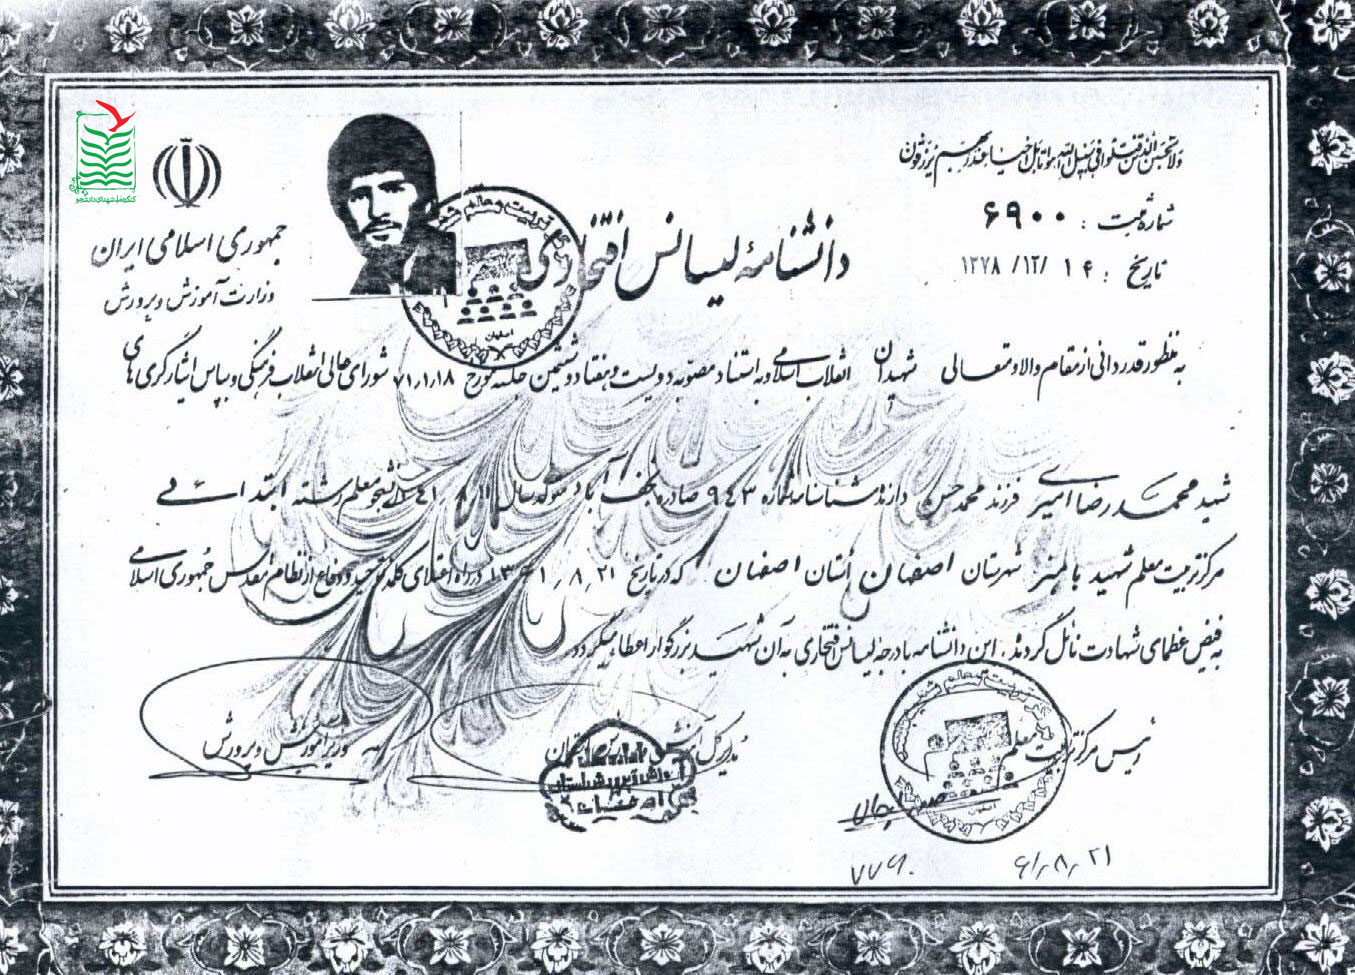 ولا تحسبن الذین قتلوا فی سبیل الله امواتا بل احیاء عند ربهم یرزقون
شماره ثبت : ۶۹۰۰
تاریخ : ۱۴ /۱۲/ ۱۳۷۸
جمهوری اسلامی ایران
وزارت آموزش و پرورش
کنگره ملی شهدای دانشجو
دانشنامهٔ لیسانس افتخاری
به منظور قدردانی از مقام والا و متعالی شهیدان انقلاب اسلامی و به استناد مصوبه دویست و هفتاد و ششمین جلسه مورخ ۷۱،۱،۱۸ شورای عالی انقلاب فرهنگی و بپاس ایثارگری های
شهید محمد رضا امیری فرزند محمد حسن دارنده شناسنامه شماره ۹۴۳ صادره نجف آباد متولد سال دانشجو معلم رشته ابتدائی
مرکز تربیت معلم شهید باهنر شهرستان اصفهان استان اصفهان که در تاریخ ۱۳۶۱،۸،۲۱ در راه اعتلای کلمه توحید و دفاع از نظام مقدس جمهوری اسلامی
به فیض عظمای شهادت نائل گردید. این دانشنامه با درجه لیسانس افتخاری به آن شهید بزرگوار اعطاء میگردد
رئیس مرکز تربیت معلم
مدیر کل آموزش
وزیر آموزش و پرورش
اصفهان
۶۱،۸،۲۱